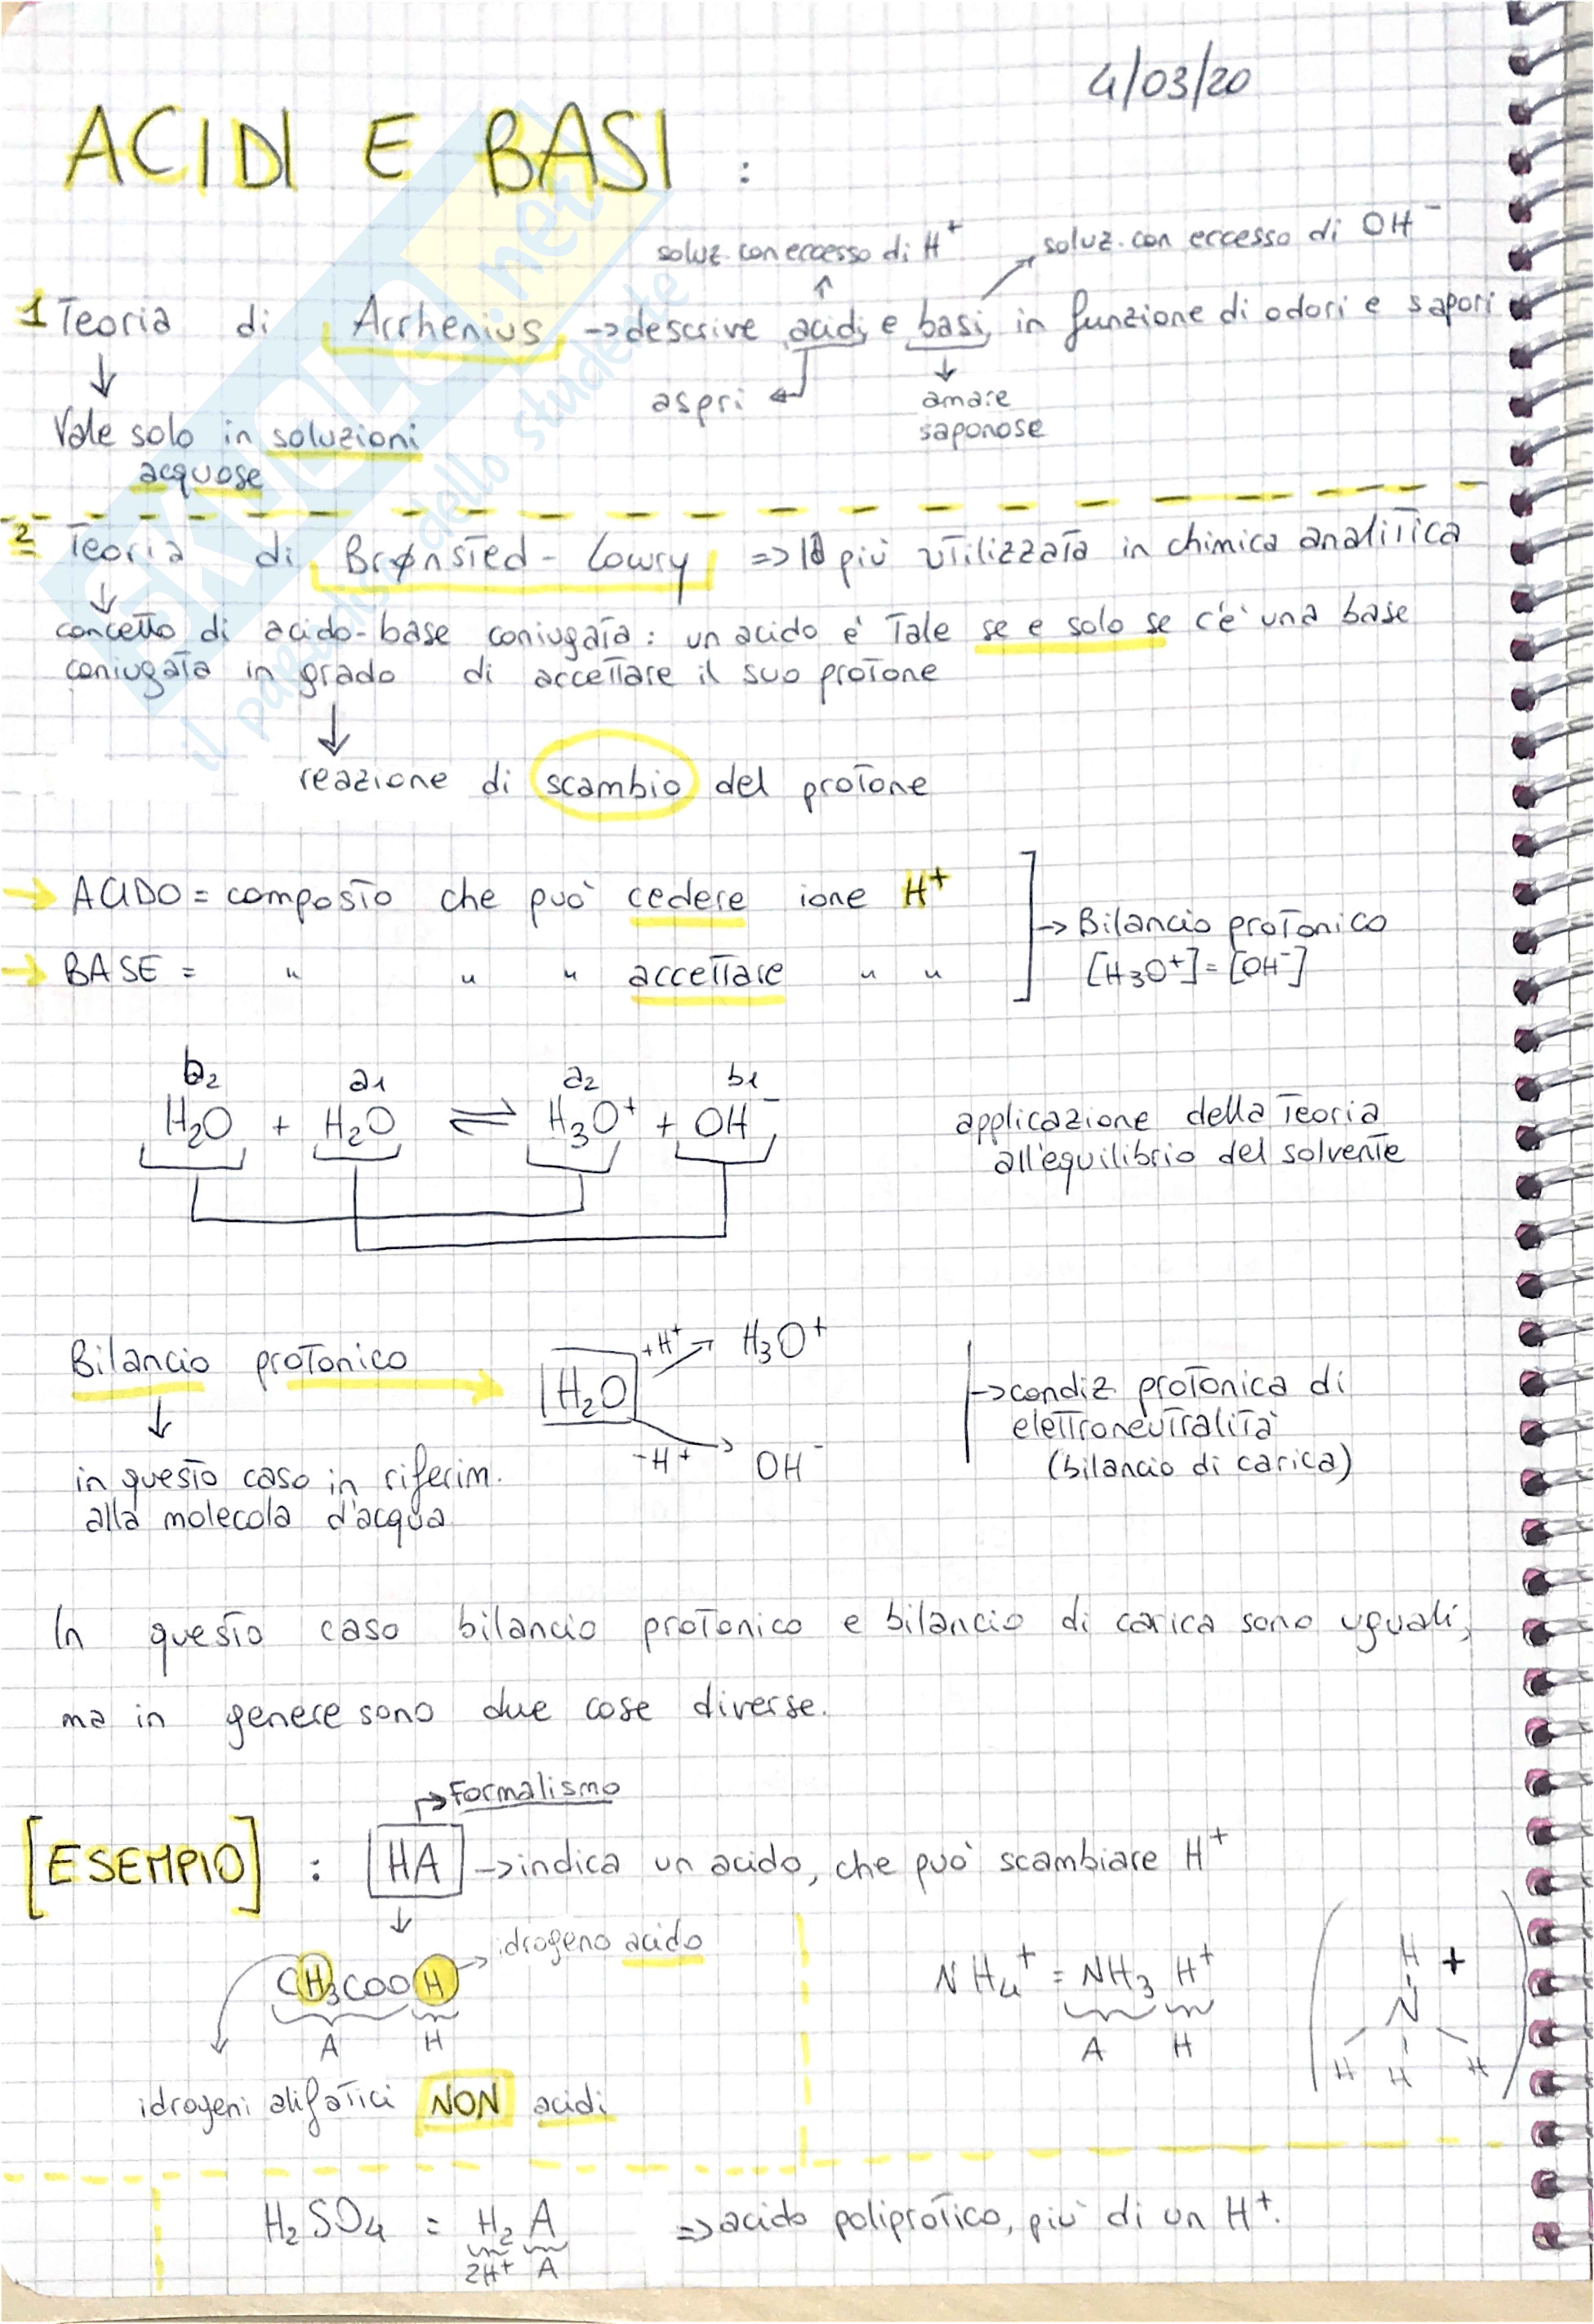 4/03/20
ACIDI E BASI :
soluz. con eccesso di H⁺
soluz. con eccesso di OH⁻
1 Teoria di Arrhenius → descrive acidi e basi in funzione di odori e sapori
aspri
amare
saponose
Vale solo in soluzioni
acquose
2 Teoria di Brønsted - Lowry => la più utilizzata in chimica analitica
concetto di acido-base coniugata: un acido è tale se e solo se c'è una base
coniugata in grado di accettare il suo protone
reazione di scambio del protone
→ ACIDO = composto che può cedere ione H⁺
→ Bilancio protonico
→ BASE = " " " accettare " "
[H₃O⁺] = [OH⁻]
b₂ a₁ a₂ b₁
H₂O + H₂O ⇌ H₃O⁺ + OH⁻
applicazione della teoria
all'equilibrio del solvente
Bilancio protonico → H₂O
+H⁺ H₃O⁺
-H⁺ OH⁻
→ condiz protonica di
elettroneutralità
(bilancio di carica)
in questo caso in riferim.
alla molecola d'acqua
In questo caso bilancio protonico e bilancio di carica sono uguali,
ma in genere sono due cose diverse.
Formalismo
[ESEMPIO] : HA → indica un acido, che può scambiare H⁺
idrogeno acido
CH₃COOH
A H
idrogeni alifatici NON acidi
NH₄⁺ = NH₃ H⁺
A H
H +
N
H H H
H₂SO₄ = H₂ A => acido poliprotico, più di un H⁺.
2H⁺ A
SKUOLA.net
il paradiso dello studente